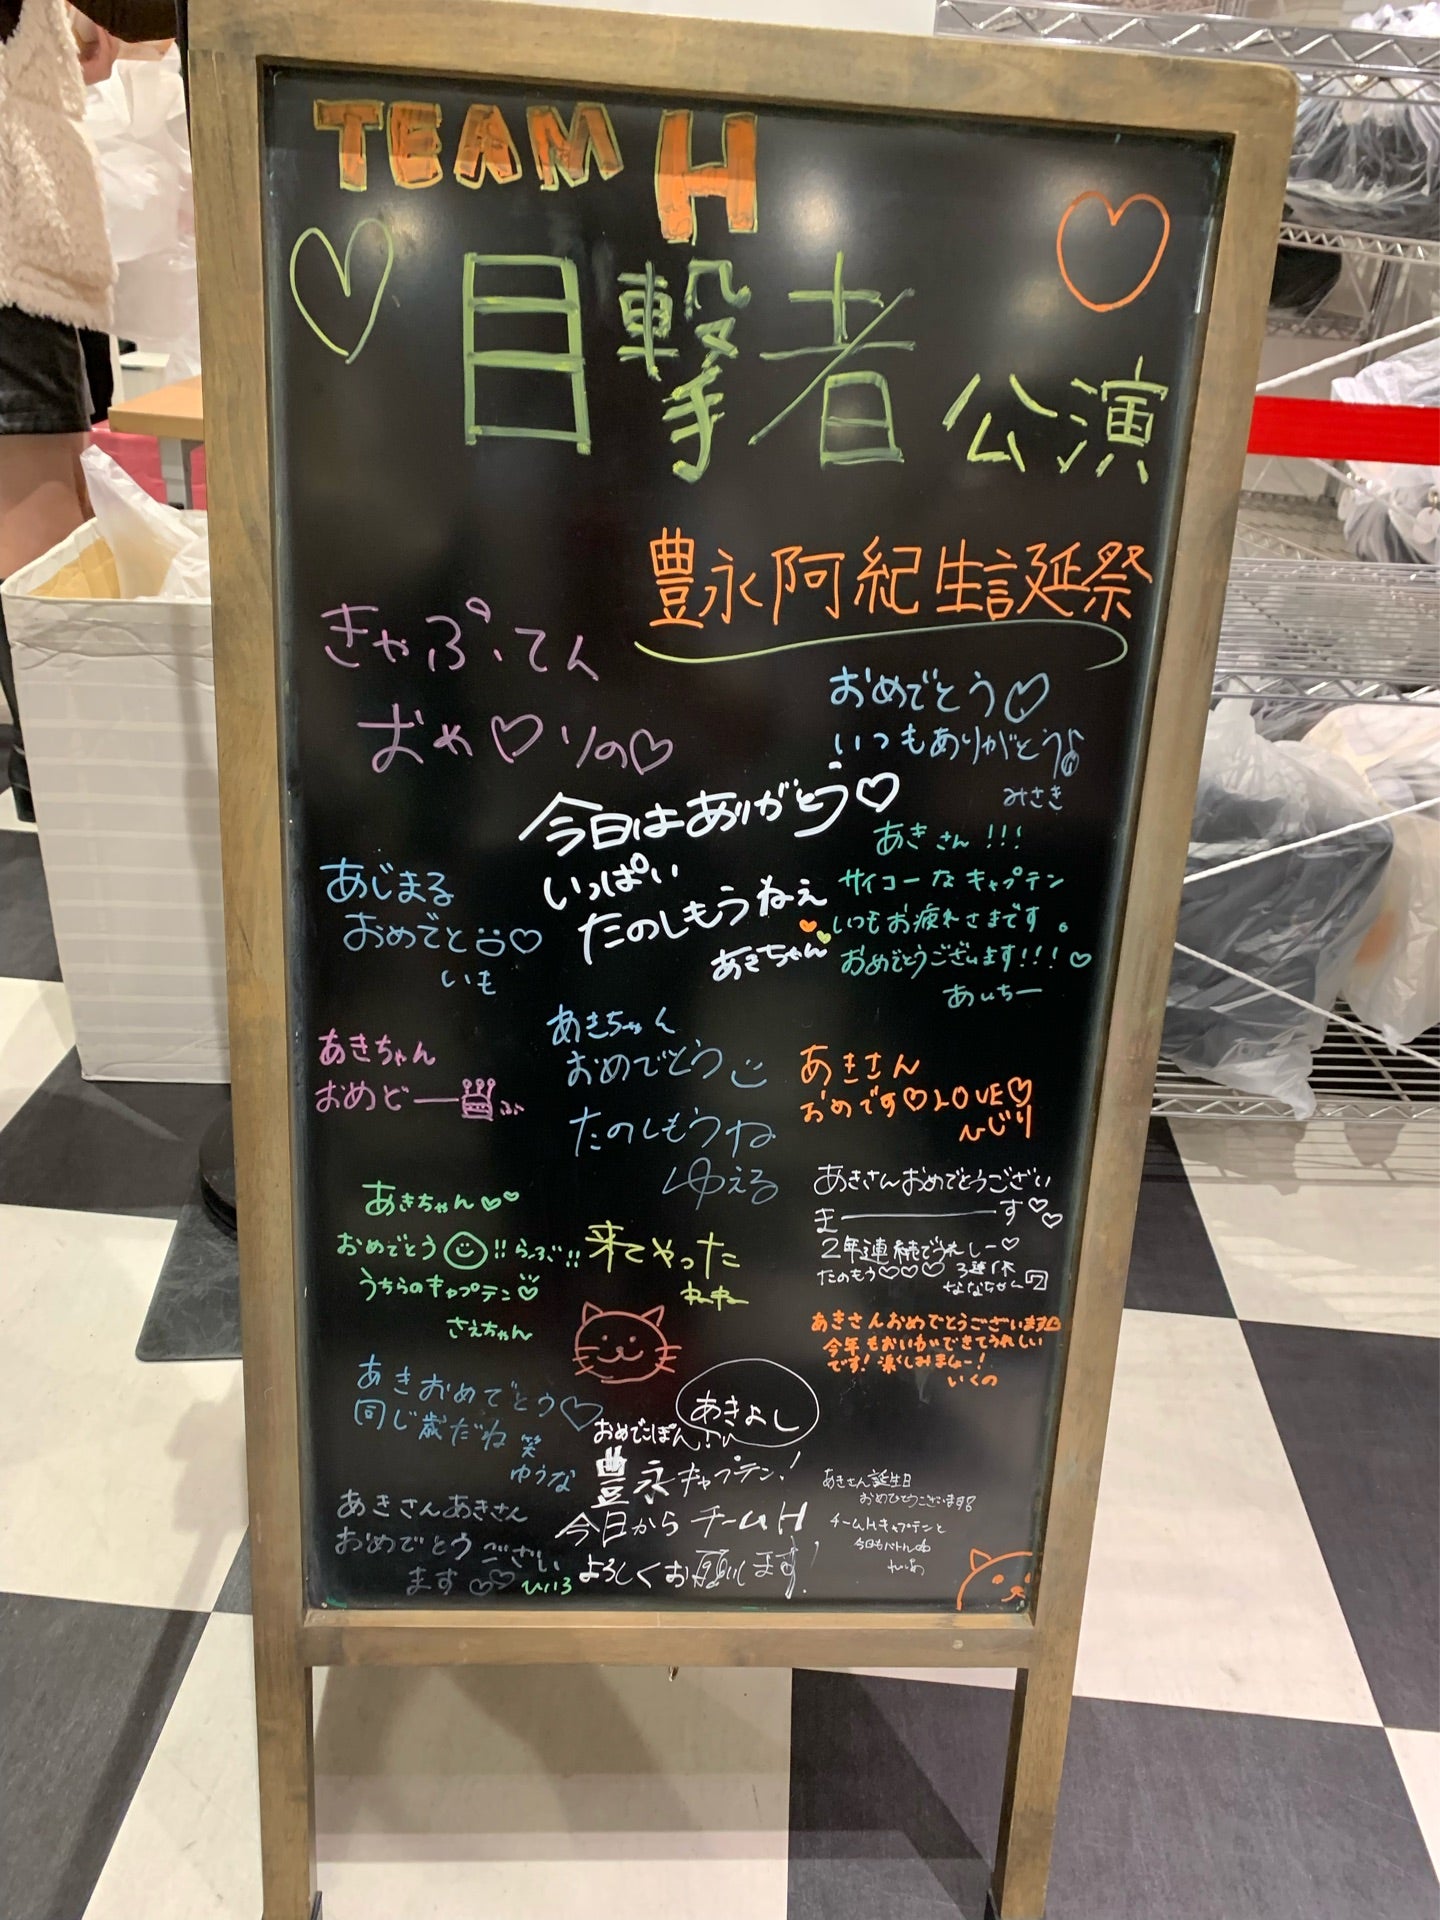 TEAM H
目撃者 公演
豊永阿紀生誕祭
きゃぷてん
おめ♡りの♡
おめでとう♡
いつもありがとう♪
みさき
今日はありがとう♡
いっぱい
たのしもうねぇ
あきちゃん
あきさん!!!
サイコーなキャプテン
いつもお疲れさまです。
おめでとうございます!!!♡
あいちー
あじまる
おめでと♡
いも
あきちゃん
おめどー
ぶ
あきちゃん
おめでとう
たのしもうね
ゆえる
あきさん
おめです♡LOVE♡
ひじり
あきちゃん♡♡
おめでとう!!らぶ!!
うちらのキャプテン♡
さえちゃん
来てやった
あきさんおめでとうござい
まーす♡♡
2年連続でうれしー♡
たのもう♡♡♡
ななちゃん
あきさんおめでとうございます
今年もおいわいできてうれしい
です!楽しみましー!
いくの
あきおめでとう♡
同じ歳だね 笑
ゆうな
あきよし
おめでこぽん!
豊永キャプテン!
今日からチームH
よろしくお願いします!
あきさんあきさん
おめでとうござい
ます♡♡
ひいろ
あきさん誕生日
おめでとうございます
チームHキャプテンと